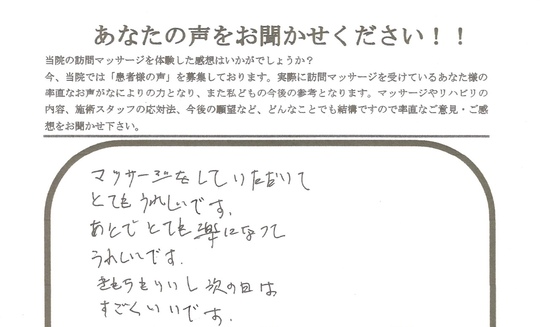 あなたの声をお聞かせください！！
当院の訪問マッサージを体験した感想はいかがでしょうか？
今、当院では「患者様の声」を募集しております。実際に訪問マッサージを受けているあなた様の
率直なお声がなによりの力となり、また私どもの今後の参考となります。マッサージやリハビリの
内容、施術スタッフの応対法、今後の願望など、どんなことでも結構ですので率直なご意見・ご感
想をお聞かせ下さい。
マッサージをしていただいて
とてもうれしいです。
あとでとても楽になって
うれしいです.
きもちもいいし次の日は
すごくいいです。